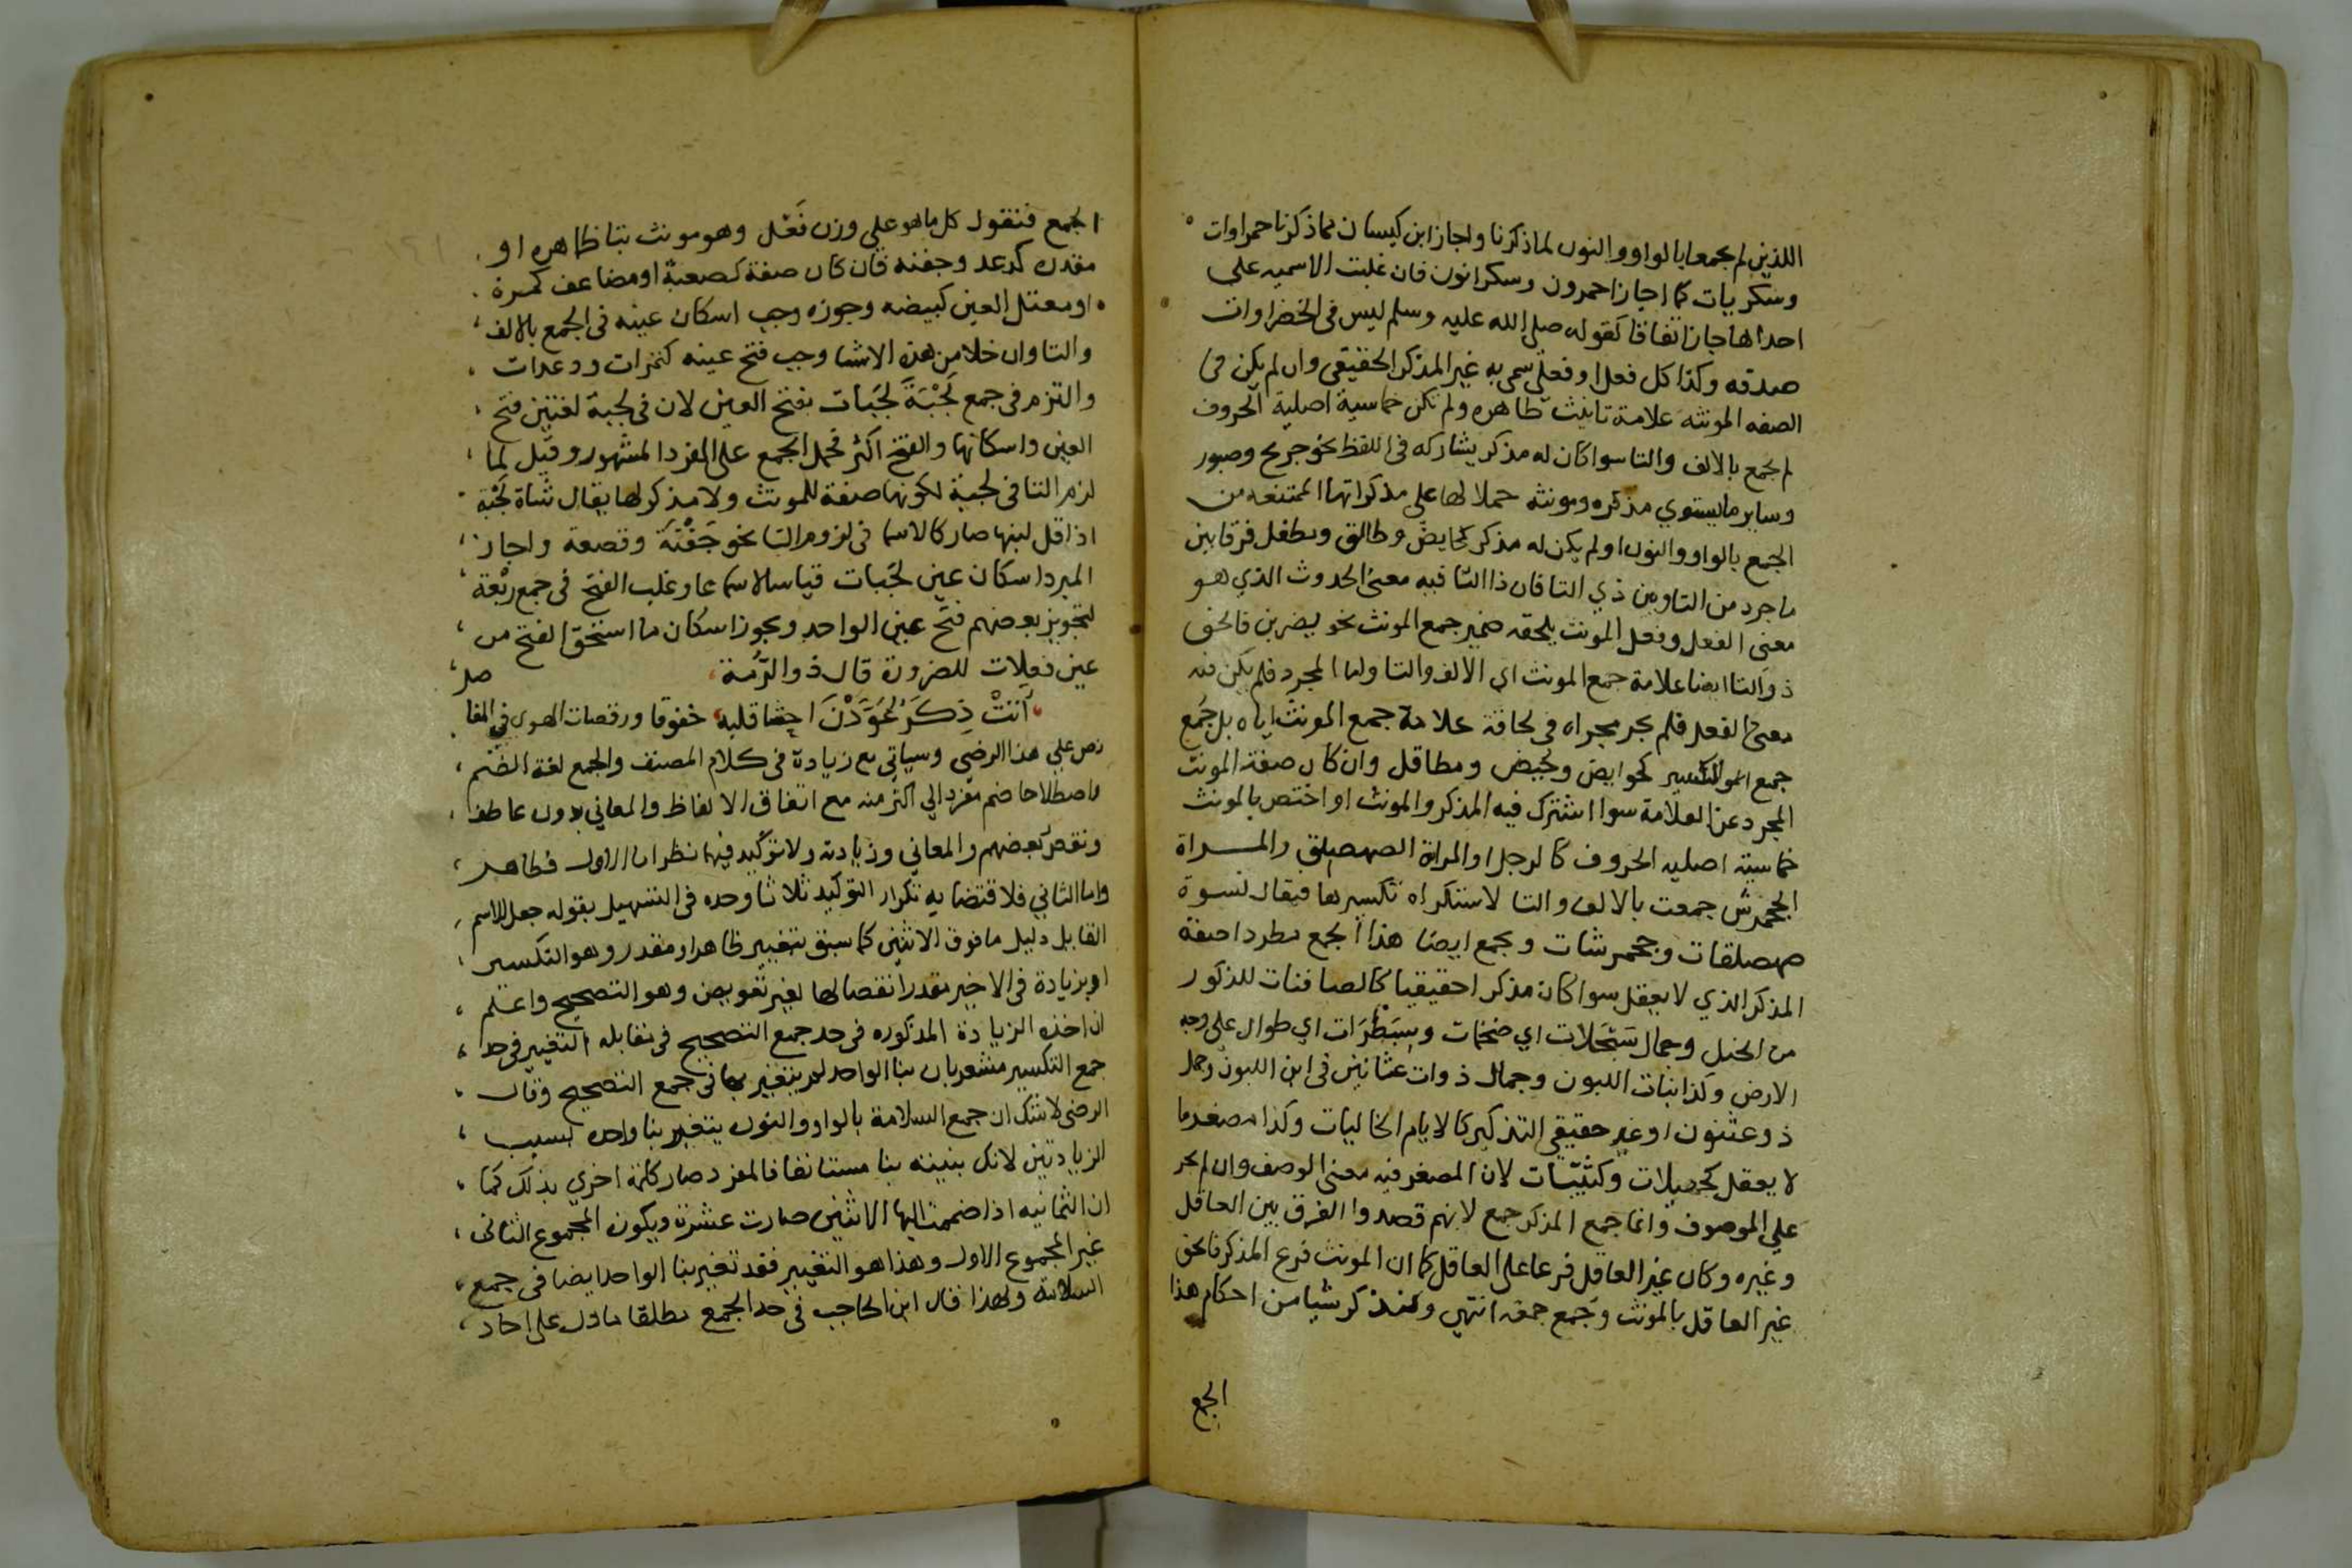 اللذين لم يجمعا بالواو والنون لما ذكرنا واجاز ابن كيسان مما ذكرنا حمراوات
وسكريات كما اجاز احمرون وسكرانون فان غلبت الاسميه علي
احداها جاز اتفاقا كقوله صلي الله عليه وسلم ليس في الخضراوات
صدقه وكذا كل فعلا وفعلي سمي به غير المذكر الحقيقي وان لم يكن في
الصفه المونثه علامة تانيث ظاهره ولم تكن خماسية اصلية الحروف
لم يجمع بالالف والتا سوا كان له مذكر يشاركه في اللفظ نحو جريح وصبور
وساير ما يستوي مذكره ومونثه حملا لها علي مذكراتها الممتنعه من
الجمع بالواو والنون او لم يكن له مذكر كحايض وطالق ومطفل فرقا بين
ما جرد من التا وبين ذي التا فان ذا التا فيه معني الحدوث الذي هو
معني الفعل وفعل المونث يلحقه ضمير جمع المونث نحو يضربن فالحق
ذو التا ايضا علامة جمع المونث اي الالف والتا واما المجرد فلم يكن فيه
معني الفعل فلم يجر مجراه في لحاقة علامة جمع المونث اياه بل جمع
جمع التكسير كحوايض وحيض ومطافل وان كان صفة المونث
المجرد عن العلامة سوا اشترك فيه المذكر والمونث او اختص بالمونث
خماسية اصليه الحروف كالرجل او المراة الصهصلق والمراة
الجحمرش جمعت بالالف والتا لاستكراه تكسيرها فيقال نسوة
صهصلقات وجحمرشات ويجمع ايضا هذا الجمع مطردا صفة
المذكر الذي لا يعقل سوا كان مذكرا حقيقيا كالصافنات للذكور
من الخيل وجمال سبحلات اي ضخمات وسبطرات اي طوال علي وجه
الارض وكذا بنات اللبون وجمال ذوات عثانين في ابن اللبون وجمل
ذو عثنون او غير حقيقي التذكير كالايام الخاليات وكذا مصغر ما
لا يعقل كجميلات وكتيبات لان المصغر فيه معني الوصف وان لم يجر
علي الموصوف وانما جمع المذكر جمع لانهم قصدوا الفرق بين العاقل
وغيره وكان غير العاقل فرعا علي العاقل كما ان المونث فرع المذكر فالحق
غير العاقل بالمونث وجمع جمعه انتهي ولنذكر شيا من احكام هذا
الجمع
الجمع فنقول كل ما هو علي وزن فعل وهو مونث بتا ظاهره او
مقدره كدعد وجفنه فان كان صفة كصعبة او مضاعف كمرة
او معتل العين كبيضه وجوزه وجب اسكان عينه في الجمع بالالف
والتا وان خلا من هذه الاشيا وجب فتح عينه كتمرات ودعدات
والتزم في جمع لَجْبَة لَجَبات بفتح العين لان في لجبة لغتين فتح
العين واسكانها والفتح اكثر فحمل الجمع علي المفرد المشهور وقيل لما
لزم التا في لجبة لكونها صفة للمونث ولا مذكر لها يقال شاة لجبة
اذا قل لبنها صار كالاسما في لزوم التا نحو جَفْنَة وقصعة واجاز
المبرد اسكان عين لجبات قياسا لا سماعا وغلب الفتح في جمع ربعة
لتجويز بعضهم فتح عين الواحد ويجوز اسكان ما استحق الفتح من
عين فعلات للضرورة قال ذو الرمة
اتت ذكر عودن احشا قلبه خفوقا ورقصات الهوي في المفاصل
نص علي هذا الرضي وسياتي مع زيادة في كلام المصنف والجمع لغة الضم
واصطلاحا ضم مفرد الي اكثر منه مع اتفاق الالفاظ والمعاني بدون عاطف
ونقص بعضهم والمعاني وزيادته ولا توكيد فيها نظر اما الاول فظاهر
واما الثاني فلاقتضايه تكرار التوكيد ثلاثا وحده في التسهيل بقوله جعل الاسم
القابل دليل ما فوق الاثنين كما سبق بتغيير ظاهر او مقدر وهو التكسير
او بزيادة في الاخير مقدر انفصالها لغير تعويض وهو التصحيح واعلم
ان اخذه الزيادة المذكوره في حد جمع التصحيح في مقابله التغيير في حد
جمع التكسير مشعر بان بنا الواحد لم يتغير في جمع التصحيح وقال
الرضي لا شك ان جمع السلامة بالواو والنون يتغير بنا واحده بسبب
الزيادتين لانك بنيته بنا مستانفا فالمفرد صار كلمة اخري بذلك كما
ان الثمانيه اذا ضممت اليها الاثنين صارت عشرة ويكون المجموع الثاني
غير المجموع الاول وهذا هو التغيير فقد تغير بنا الواحد ايضا في جمع
السلامة ولهذا قال ابن الحاجب في حد الجمع مطلقا ما دل علي احاد